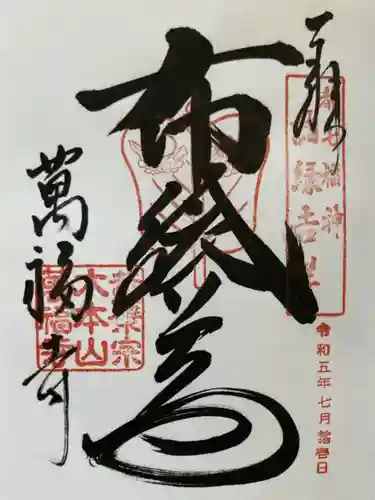 奉拝
都七福神
布袋尊
萬福寺
黄檗宗
大本山
萬福寺
令和五年七月拾壱日